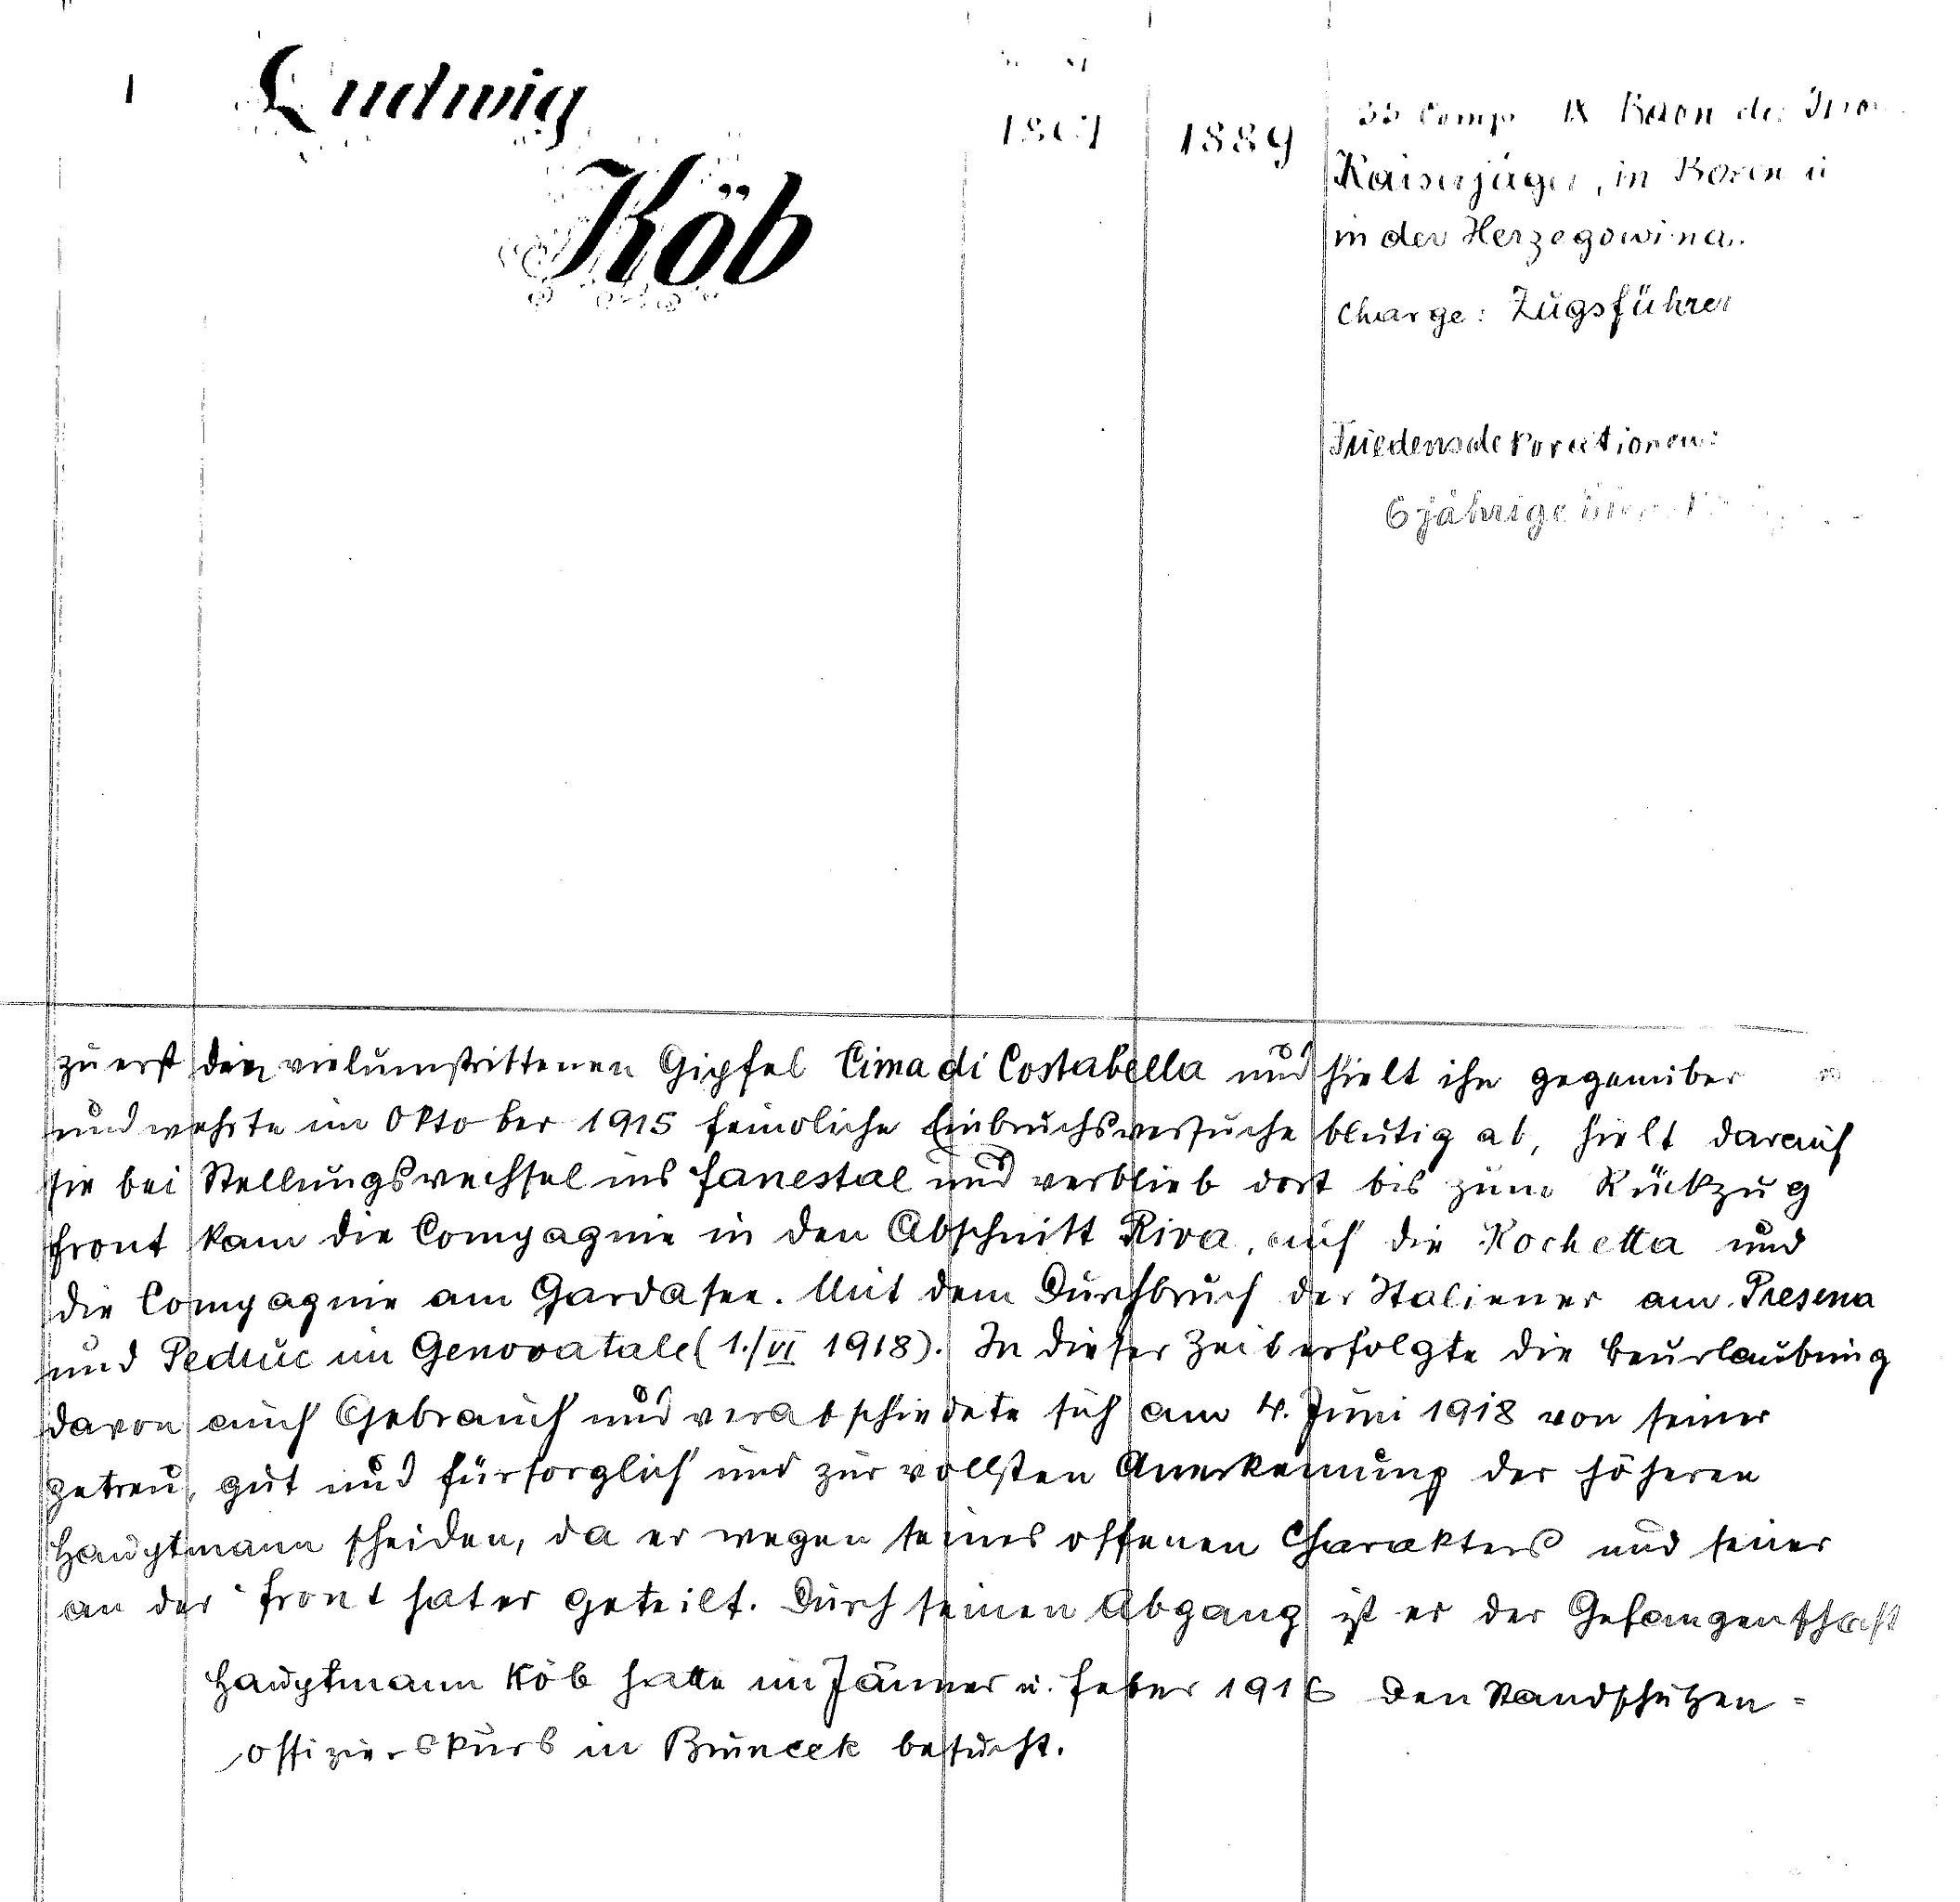 1 Ludwig
Köb
1889
Comp. IX Baon der
Kaiserjäger, in Bozen u
in der Herzegowina.
Charge: Zugsführer
Friedensdekorationen:
6 jährige
zuerst den vielumstrittenen Gipfel Cima di Costabella und hielt ihn gegenüber
und wehrte im Oktober 1915 feindliche Einbruchsversuche blutig ab, hielt darauf
sie bei Stellungswechsel ins Fanestal und verblieb dort bis zum Rückzug
Front kam die Compagnie in den Abschnitt Riva, auf die Rochetta und
die Compagnie am Gardasee. Mit dem Durchbruch der Italiener am Presena
und Peduc im Genovatale (1./VI 1918). In dieser Zeit erfolgte die Beurlaubung
davon auch Gebrauch und verabschiedete sich am 4. Juni 1918 von seiner
getreu, gut und fürsorglich und zur vollsten Anerkennung der höheren
Hauptmann scheiden, da er wegen seines offenen Charakters und seiner
an der Front hat er geteilt. Durch seinen Abgang ist er der Gefangenschaft
Hauptmann Köb hatte im Jänner u. Feber 1916 den Standschützen-
offizierskurs in Bruneck besucht.